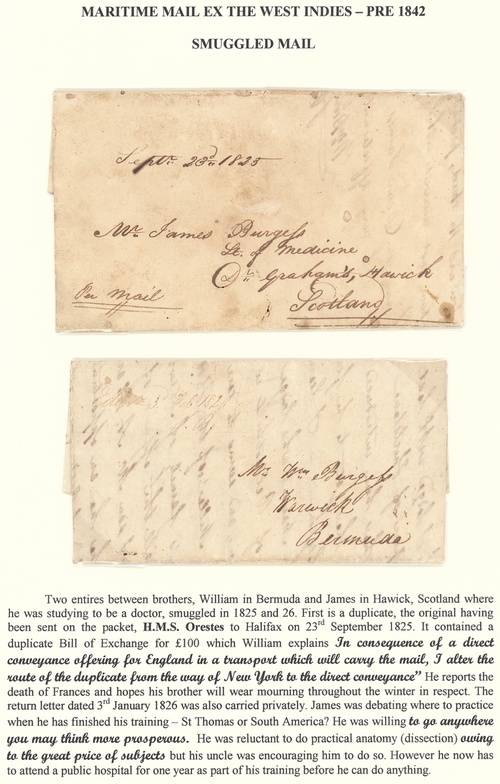 MARITIME MAIL EX THE WEST INDIES – PRE 1842
SMUGGLED MAIL
Septr. 23rd 1825
Mr. James Burgess
St. of Medicine
Dr. Graham's, Hawick
Per Mail
Scotland
Mr. Wm. Burgess
Warwick
Bermuda
Two entires between brothers, William in Bermuda and James in Hawick, Scotland where
he was studying to be a doctor, smuggled in 1825 and 26. First is a duplicate, the original having
been sent on the packet, H.M.S. Orestes to Halifax on 23rd September 1825. It contained a
duplicate Bill of Exchange for £100 which William explains In consequence of a direct
conveyance offering for England in a transport which will carry the mail, I alter the
route of the duplicate from the way of New York to the direct conveyance" He reports the
death of Frances and hopes his brother will wear mourning throughout the winter in respect. The
return letter dated 3rd January 1826 was also carried privately. James was debating where to practice
when he has finished his training – St Thomas or South America? He was willing to go anywhere
you may think more prosperous. He was reluctant to do practical anatomy (dissection) owing
to the great price of subjects but his uncle was encouraging him to do so. However he now has
to attend a public hospital for one year as part of his training before he can do anything.